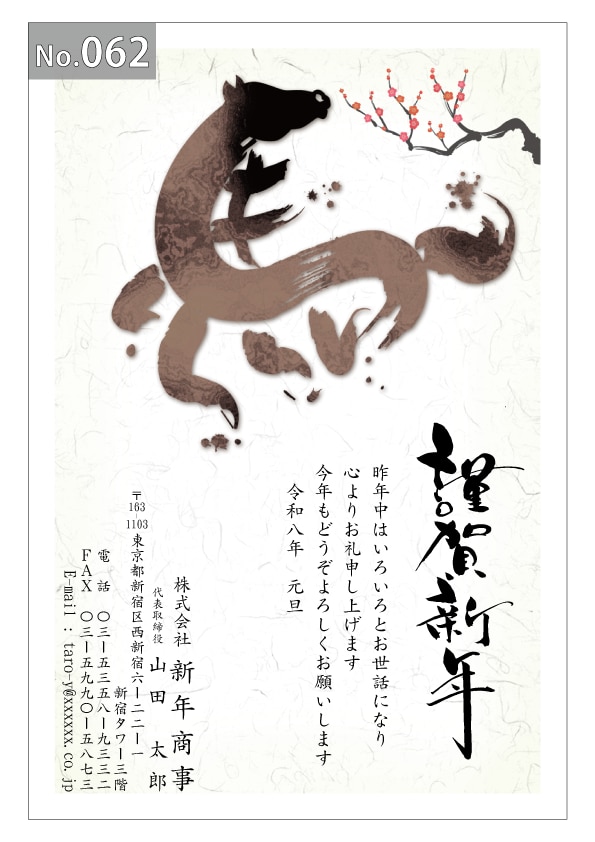 No.062
謹賀新年
昨年中はいろいろとお世話になり
心よりお礼申し上げます
今年もどうぞよろしくお願いします
令和八年　元旦
株式会社 新年商事
代表取締役 山田　太郎
〒163-1103 東京都新宿区西新宿六ー二二ー一
新宿タワー三階
電　話　〇三ー五三五八ー九三三二
ＦＡＸ　〇三ー五九九〇ー五八七三
E-mail : taro-y@xxxxxx.co.jp